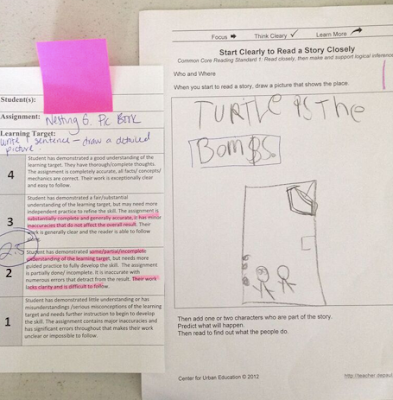 Student(s):
Assignment: Nesting & Pic Book
Learning Target:
write 1 sentence - draw a detailed
picture
4
Student has demonstrated a good understanding of the
learning target. They have thorough/complete thoughts.
The assignment is completely accurate, all facts/ concepts/
mechanics are correct. Their work is exceptionally clear
and easy to follow.
3
Student has demonstrated a fair/substantial
understanding of the learning target, but may need more
independent practice to refine the skill. The assignment is
substantially complete and generally accurate, it has minor
inaccuracies that do not affect the overall result. Their
work is generally clear and the reader is able to follow
2.5
2
Student has demonstrated some/partial/incomplete
understanding of the learning target, but needs more
guided practice to fully develop the skill. The assignment
is partially done/ incomplete. It is inaccurate with
numerous errors that detract from the result. Their work
lacks clarity and is difficult to follow.
1
Student has demonstrated little understanding or has
misunderstandings /serious misconceptions of the learning
target and needs further instruction to begin to develop
the skill. The assignment contains major inaccuracies and
has significant errors throughout that makes their work
unclear or impossible to follow
Focus Think Clearly Learn More
Start Clearly to Read a Story Closely
Common Core Reading Standard 1: Read closely, then make and support logical inference
Who and Where
When you start to read a story, draw a picture that shows the place.
TURTLE is The
BomBS
Then add one or two characters who are part of the story.
Predict what will happen.
Then read to find out what the people do.
Center for Urban Education © 2012
http://teacher.depau